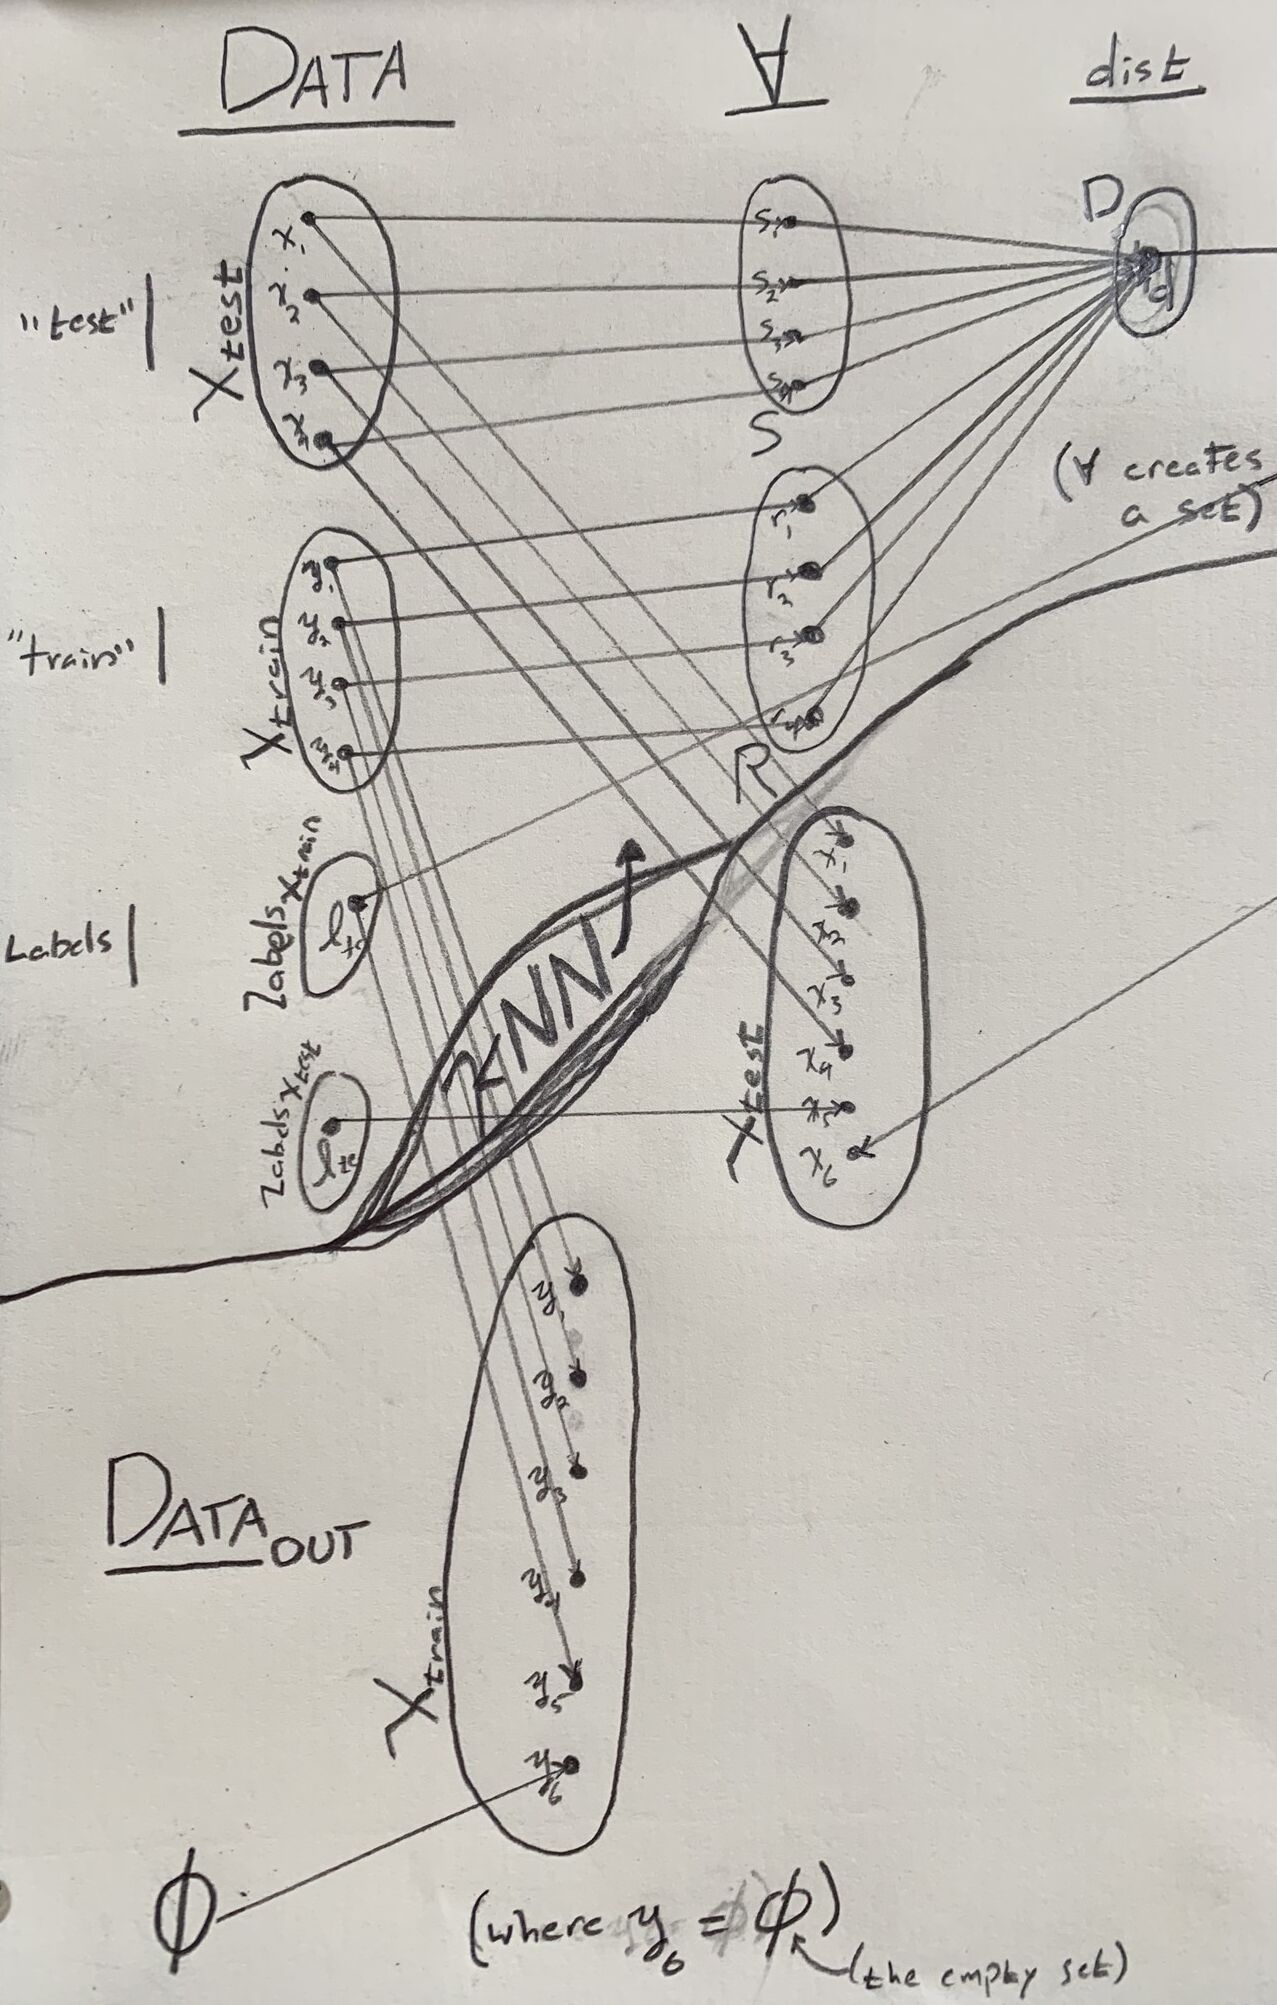 DATA
∀
dist
"test"
Xtest
x1
x2
x3
x4
s1
s2
s3
s4
S
D
d
(∀ creates
a set)
"train"
Xtrain
y1
y2
y3
y4
r1
r2
r3
r4
R
Labels
Labels Xtrain
ltr
KNN
Labels Xtest
lte
Xtest
x1
x2
x3
x4
x5
x6
DATA OUT
Xtrain
y1
y2
y3
y4
y5
y6
ϕ
(where y6 = ϕ)
(the empty set)